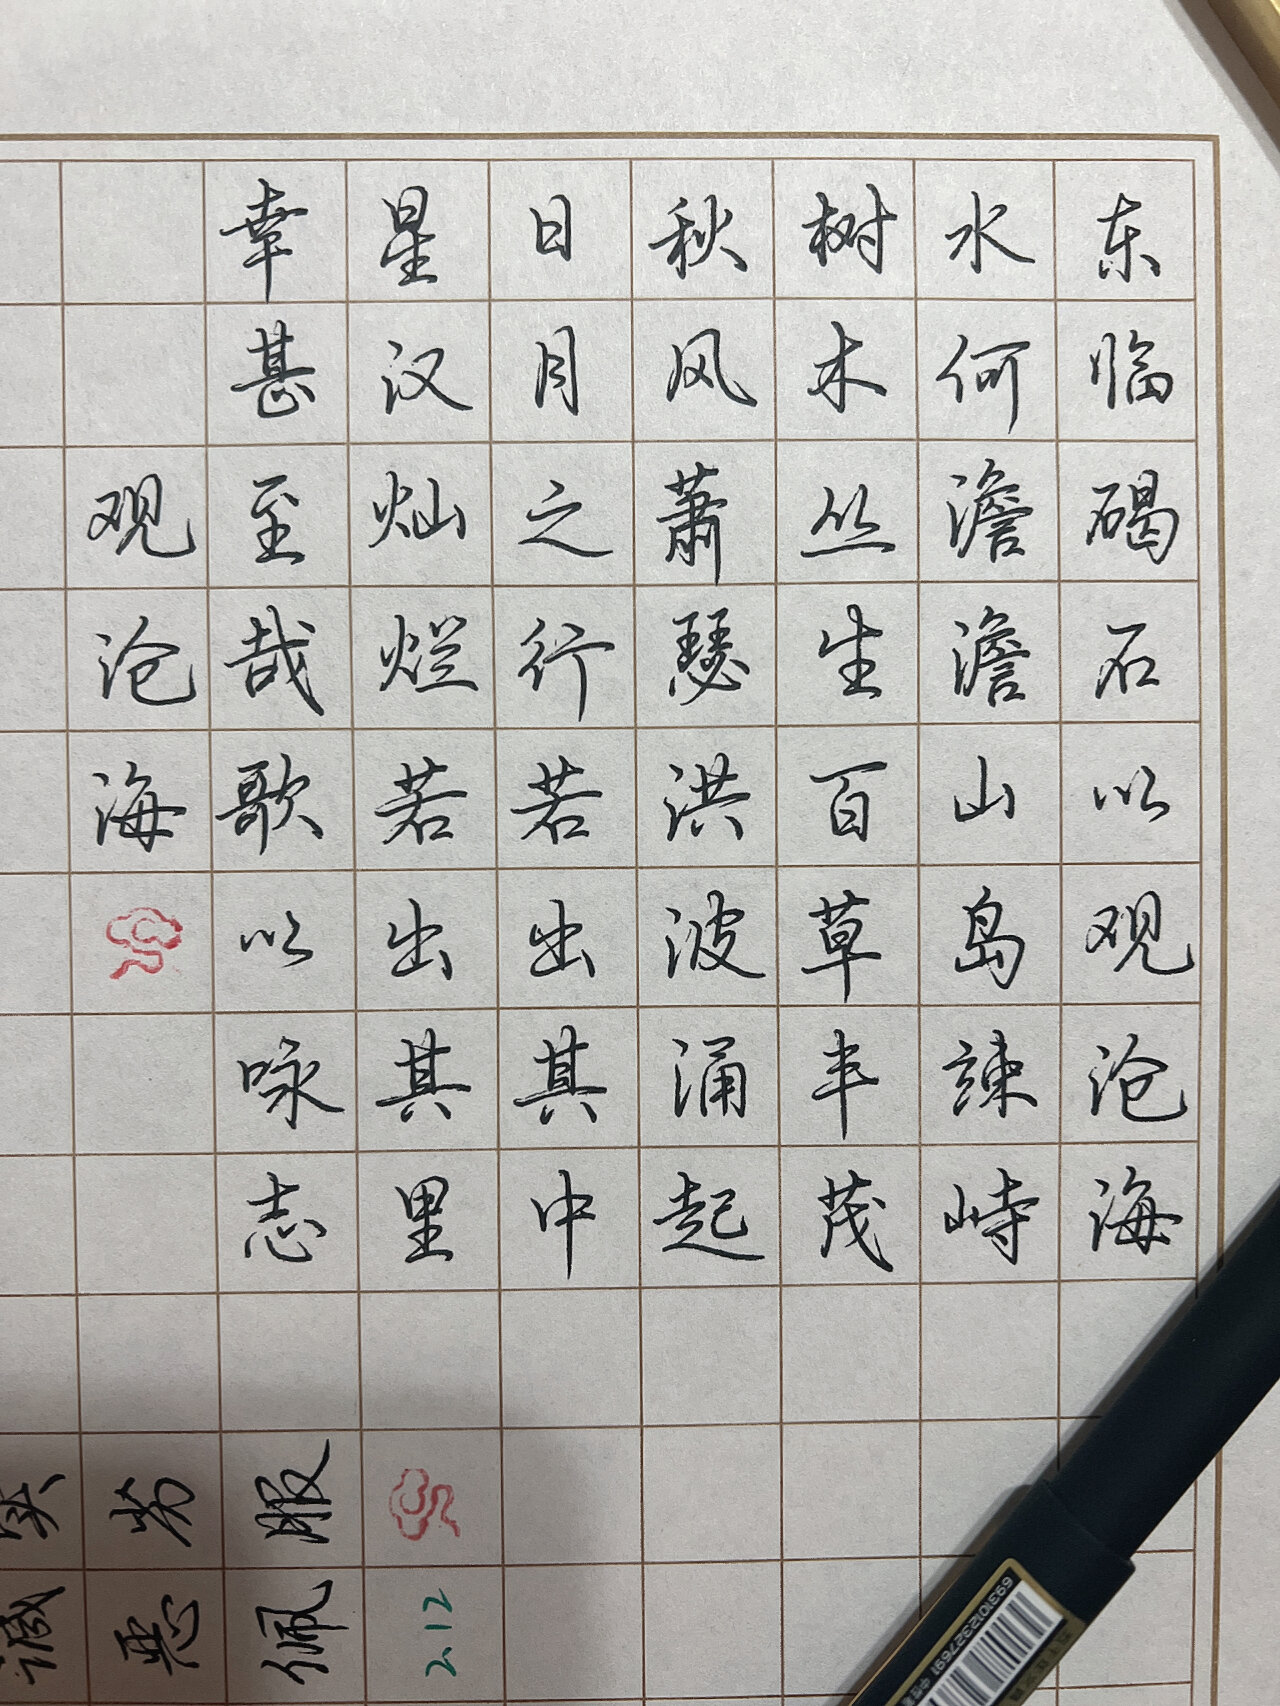 东临碣石以观沧海
水何澹澹山岛竦峙
树木丛生百草丰茂
秋风萧瑟洪波涌起
日月之行若出其中
星汉灿烂若出其里
幸甚至哉歌以咏志
观沧海
佩服
2.12
6931012327691